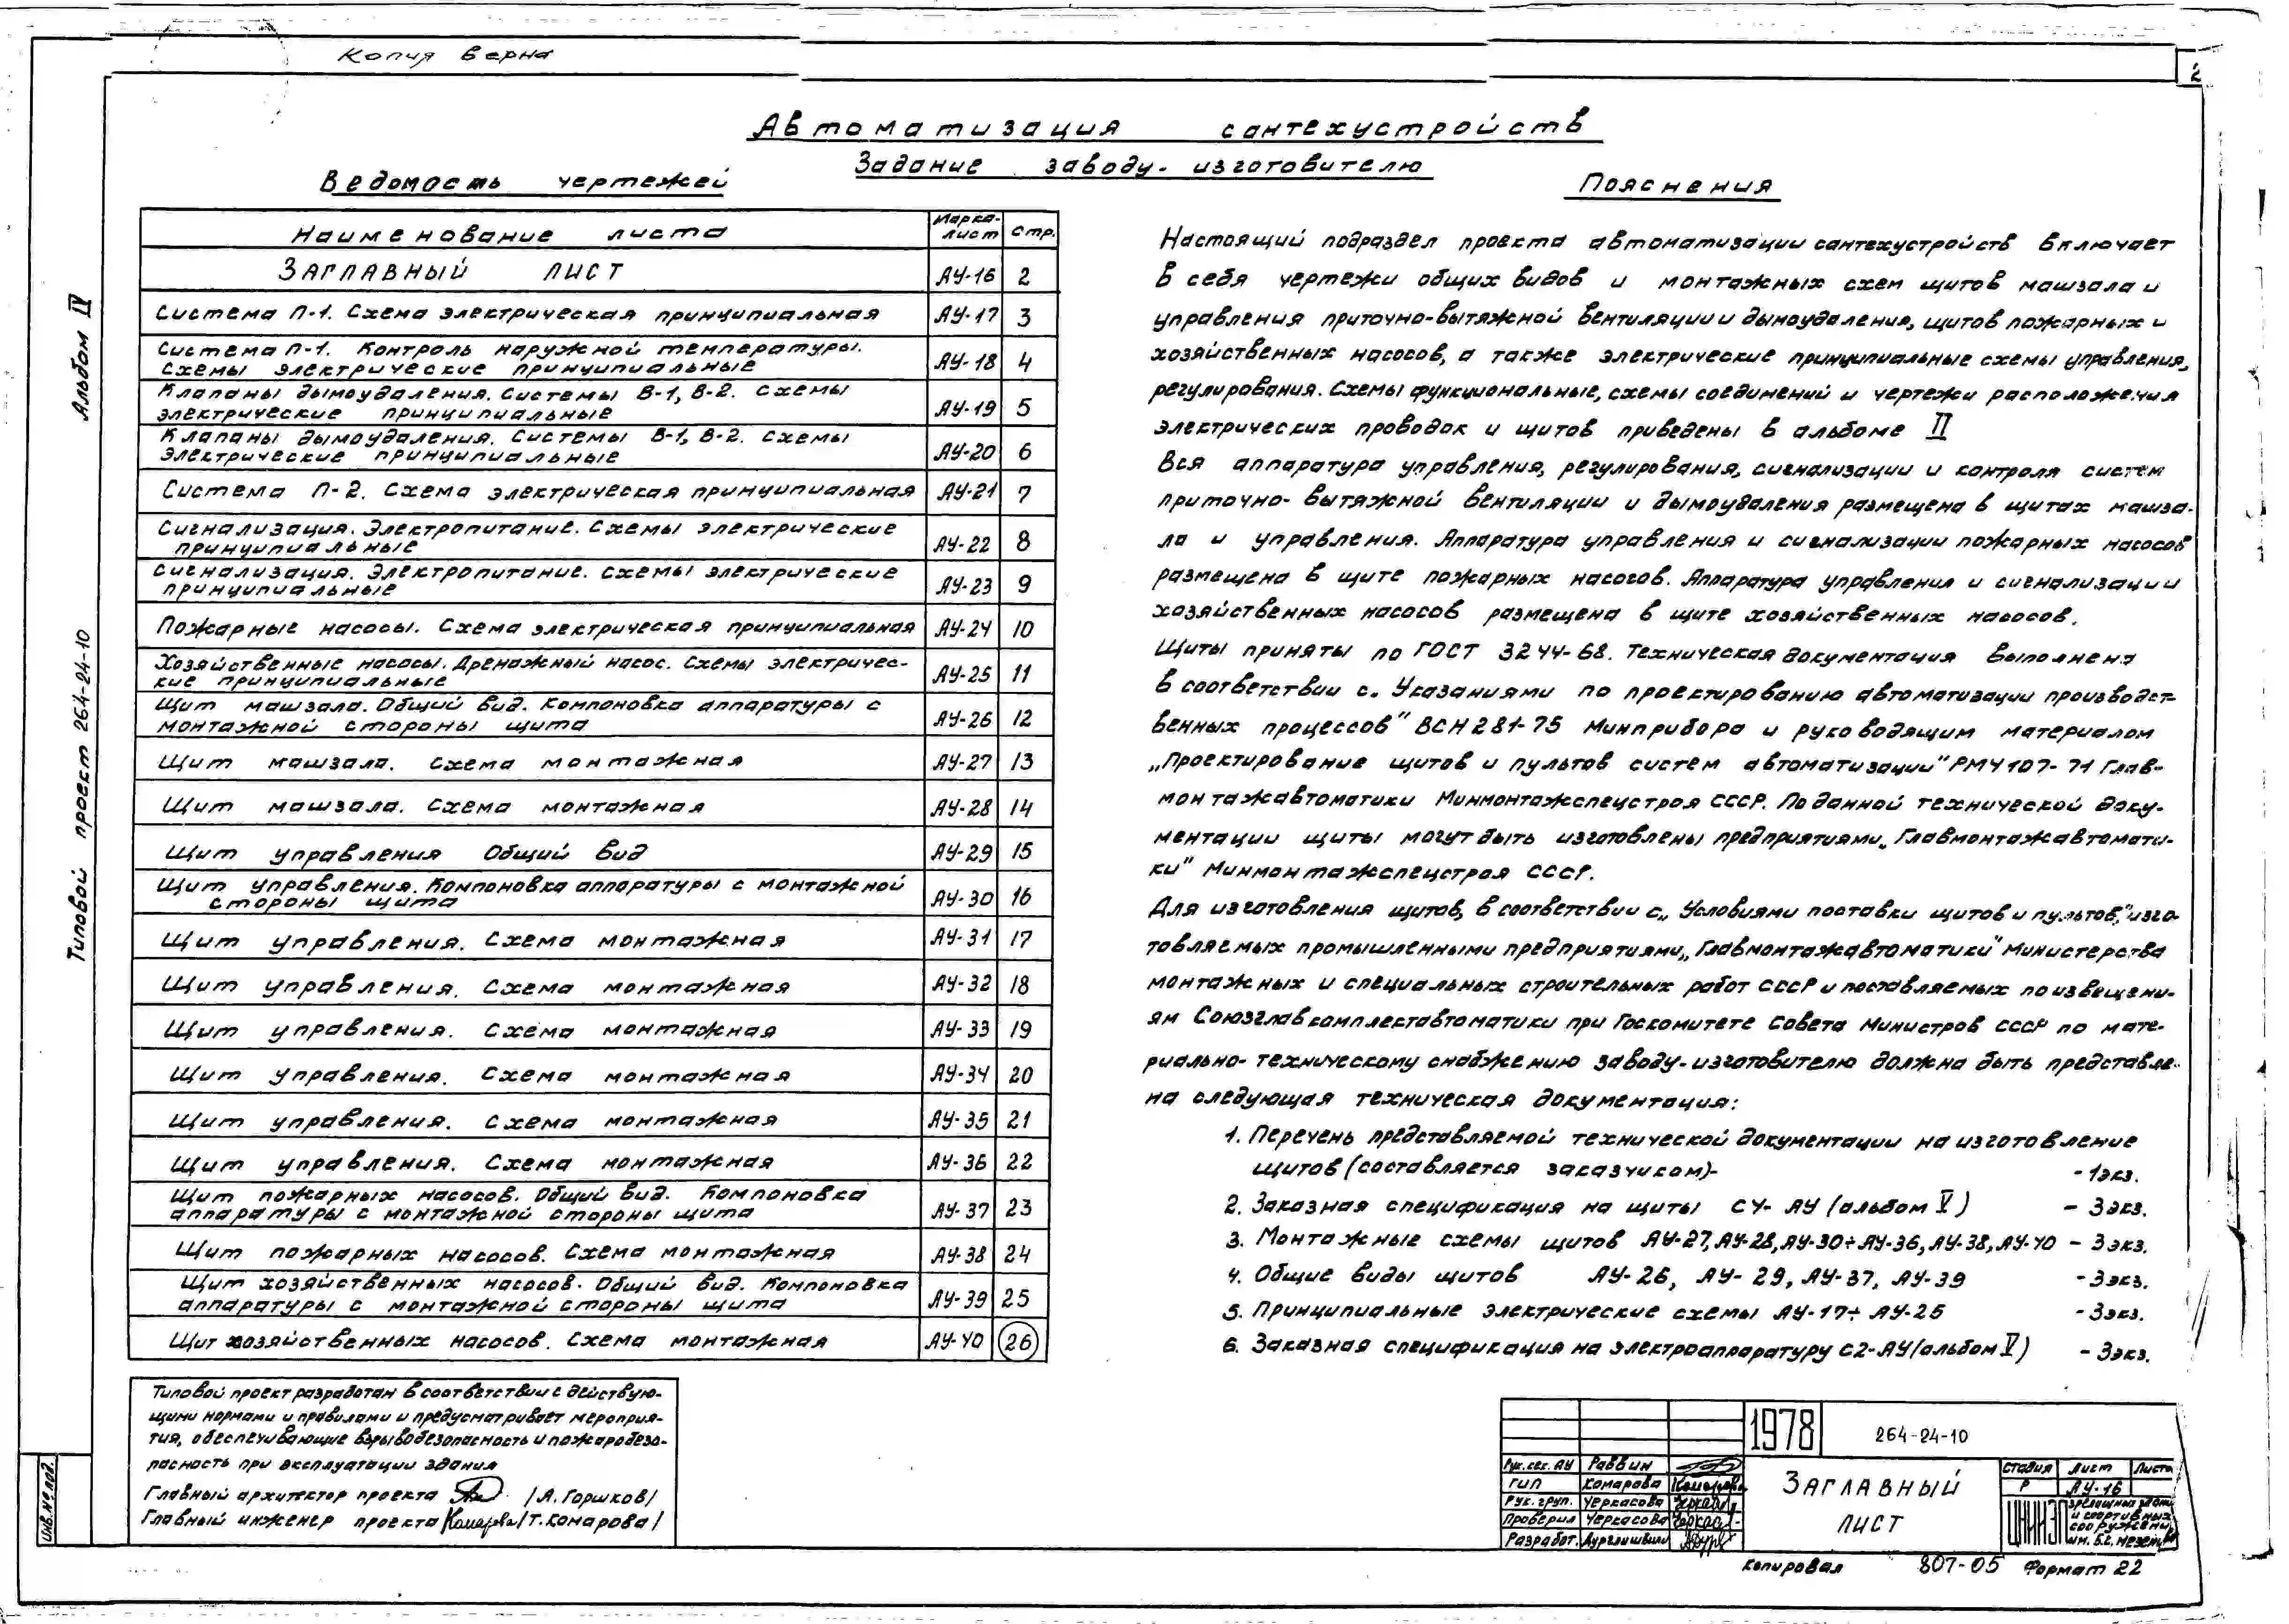 Копия верна
2
Автоматизация сантехустройств
Задание заводу-изготовителю
Ведомость чертежей
Наименование листа Марка-лист Стр.
Заглавный лист АУ-16 2
Система П-1. Схема электрическая принципиальная АУ-17 3
Система П-1. Контроль наружной температуры.
Схемы электрические принципиальные АУ-18 4
Клапаны дымоудаления. Системы В-1, В-2. Схемы
электрические принципиальные АУ-19 5
Клапаны дымоудаления. Системы В-1, В-2. Схемы
электрические принципиальные АУ-20 6
Система П-2. Схема электрическая принципиальная АУ-21 7
Сигнализация. Электропитание. Схемы электрические
принципиальные АУ-22 8
Сигнализация. Электропитание. Схемы электрические
принципиальные АУ-23 9
Пожарные насосы. Схема электрическая принципиальная АУ-24 10
Хозяйственные насосы. Дренажный насос. Схемы электричес-
кие принципиальные АУ-25 11
Щит машзала. Общий вид. Компоновка аппаратуры с
монтажной стороны щита АУ-26 12
Щит машзала. Схема монтажная АУ-27 13
Щит машзала. Схема монтажная АУ-28 14
Щит управления Общий вид АУ-29 15
Щит управления. Компоновка аппаратуры с монтажной
стороны щита АУ-30 16
Щит управления. Схема монтажная АУ-31 17
Щит управления. Схема монтажная АУ-32 18
Щит управления. Схема монтажная АУ-33 19
Щит управления. Схема монтажная АУ-34 20
Щит управления. Схема монтажная АУ-35 21
Щит управления. Схема монтажная АУ-36 22
Щит пожарных насосов. Общий вид. Компоновка
аппаратуры с монтажной стороны щита АУ-37 23
Щит пожарных насосов. Схема монтажная АУ-38 24
Щит хозяйственных насосов. Общий вид. Компоновка
аппаратуры с монтажной стороны щита АУ-39 25
Щит хозяйственных насосов. Схема монтажная АУ-40 26
Типовой проект разработан в соответствии с действую-
щими нормами и правилами и предусматривает мероприя-
тия, обеспечивающие взрывобезопасность и пожаробезо-
пасность при эксплуатации здания
Главный архитектор проекта /А. Горшков/
Главный инженер проекта Комарова /Т. Комарова/
Пояснения
Настоящий подраздел проекта автоматизации сантехустройств включает
в себя чертежи общих видов и монтажных схем щитов машзала и
управления приточно-вытяжной вентиляции и дымоудаления, щитов пожарных и
хозяйственных насосов, а также электрические принципиальные схемы управления,
регулирования. Схемы функциональные, схемы соединений и чертежи расположения
электрических проводок и щитов приведены в альбоме II
Вся аппаратура управления, регулирования, сигнализации и контроля систем
приточно-вытяжной вентиляции и дымоудаления размещена в щитах машза-
ла и управления. Аппаратура управления и сигнализации пожарных насосов
размещена в щите пожарных насосов. Аппаратура управления и сигнализации
хозяйственных насосов размещена в щите хозяйственных насосов.
Щиты приняты по ГОСТ 3244-68. Техническая документация выполнена
в соответствии с „Указаниями по проектированию автоматизации производст-
венных процессов" ВСН 281-75 Минприбора и руководящим материалом
„Проектирование щитов и пультов систем автоматизации" РМ4 107-71 Глав-
монтажавтоматики Минмонтажспецстроя СССР. По данной технической доку-
ментации щиты могут быть изготовлены предприятиями „Главмонтажавтомати-
ки" Минмонтажспецстроя СССР.
Для изготовления щитов, в соответствии с „Условиями поставки щитов и пультов," изго-
товляемых промышленными предприятиями „Главмонтажавтоматики" Министерства
монтажных и специальных строительных работ СССР и поставляемых по извещени-
ям Союзглавкомплектавтоматики при Госкомитете Совета Министров СССР по мате-
риально-техническому снабжению заводу-изготовителю должна быть представле-
на следующая техническая документация:
1. Перечень представляемой технической документации на изготовление
щитов (составляется заказчиком)- - 1 экз.
2. Заказная спецификация на щиты С4-АУ (альбом V) - 3 экз.
3. Монтажные схемы щитов АУ-27, АУ-28, АУ-30÷АУ-36, АУ-38, АУ-40 - 3 экз.
4. Общие виды щитов АУ-26, АУ-29, АУ-37, АУ-39 - 3 экз.
5. Принципиальные электрические схемы АУ-17÷АУ-25 - 3 экз.
6. Заказная спецификация на электроаппаратуру С2-АУ (альбом V) - 3 экз.
Альбом IV
Типовой проект 264-24-10
Инв.№ под.
1978 264-24-10
Рук. сек. АУ Раввин
ГИП Комарова Комарова
Рук. груп. Черкасова
Проверил Черкасова
Разработ.
Заглавный
лист
Стадия Лист Листов
Р АУ-16
ЦНИИЭП зрелищных зданий
и спортивных
сооружений
им. Б.С. Мезенцева
Копировал 807-05 Формат 22